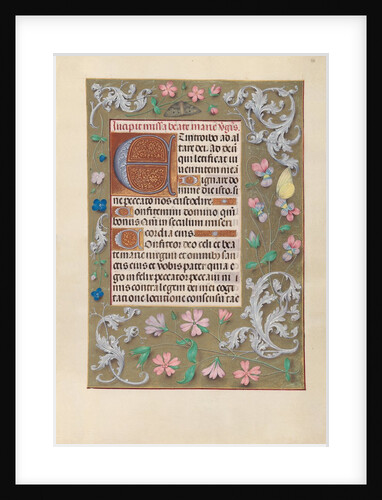 Incipit missa beate marie vgīs.
Et introibo ad al
tare dei. Ad deū
qui letificat iu
uentutem meā
Dignare do
mine die isto. si
ne peccato nos custodire
Confitemini domino qm̄
bonus Qm̄ in seculum miseri
cordia eius
Confiteor deo celi et bea
te marie virgini et omnibꝫ san
ctis eius et vobis pater quia e
go infelix peccator peccaui ni
mis contra legem dei mei cogi
tatione locutione consensu tac